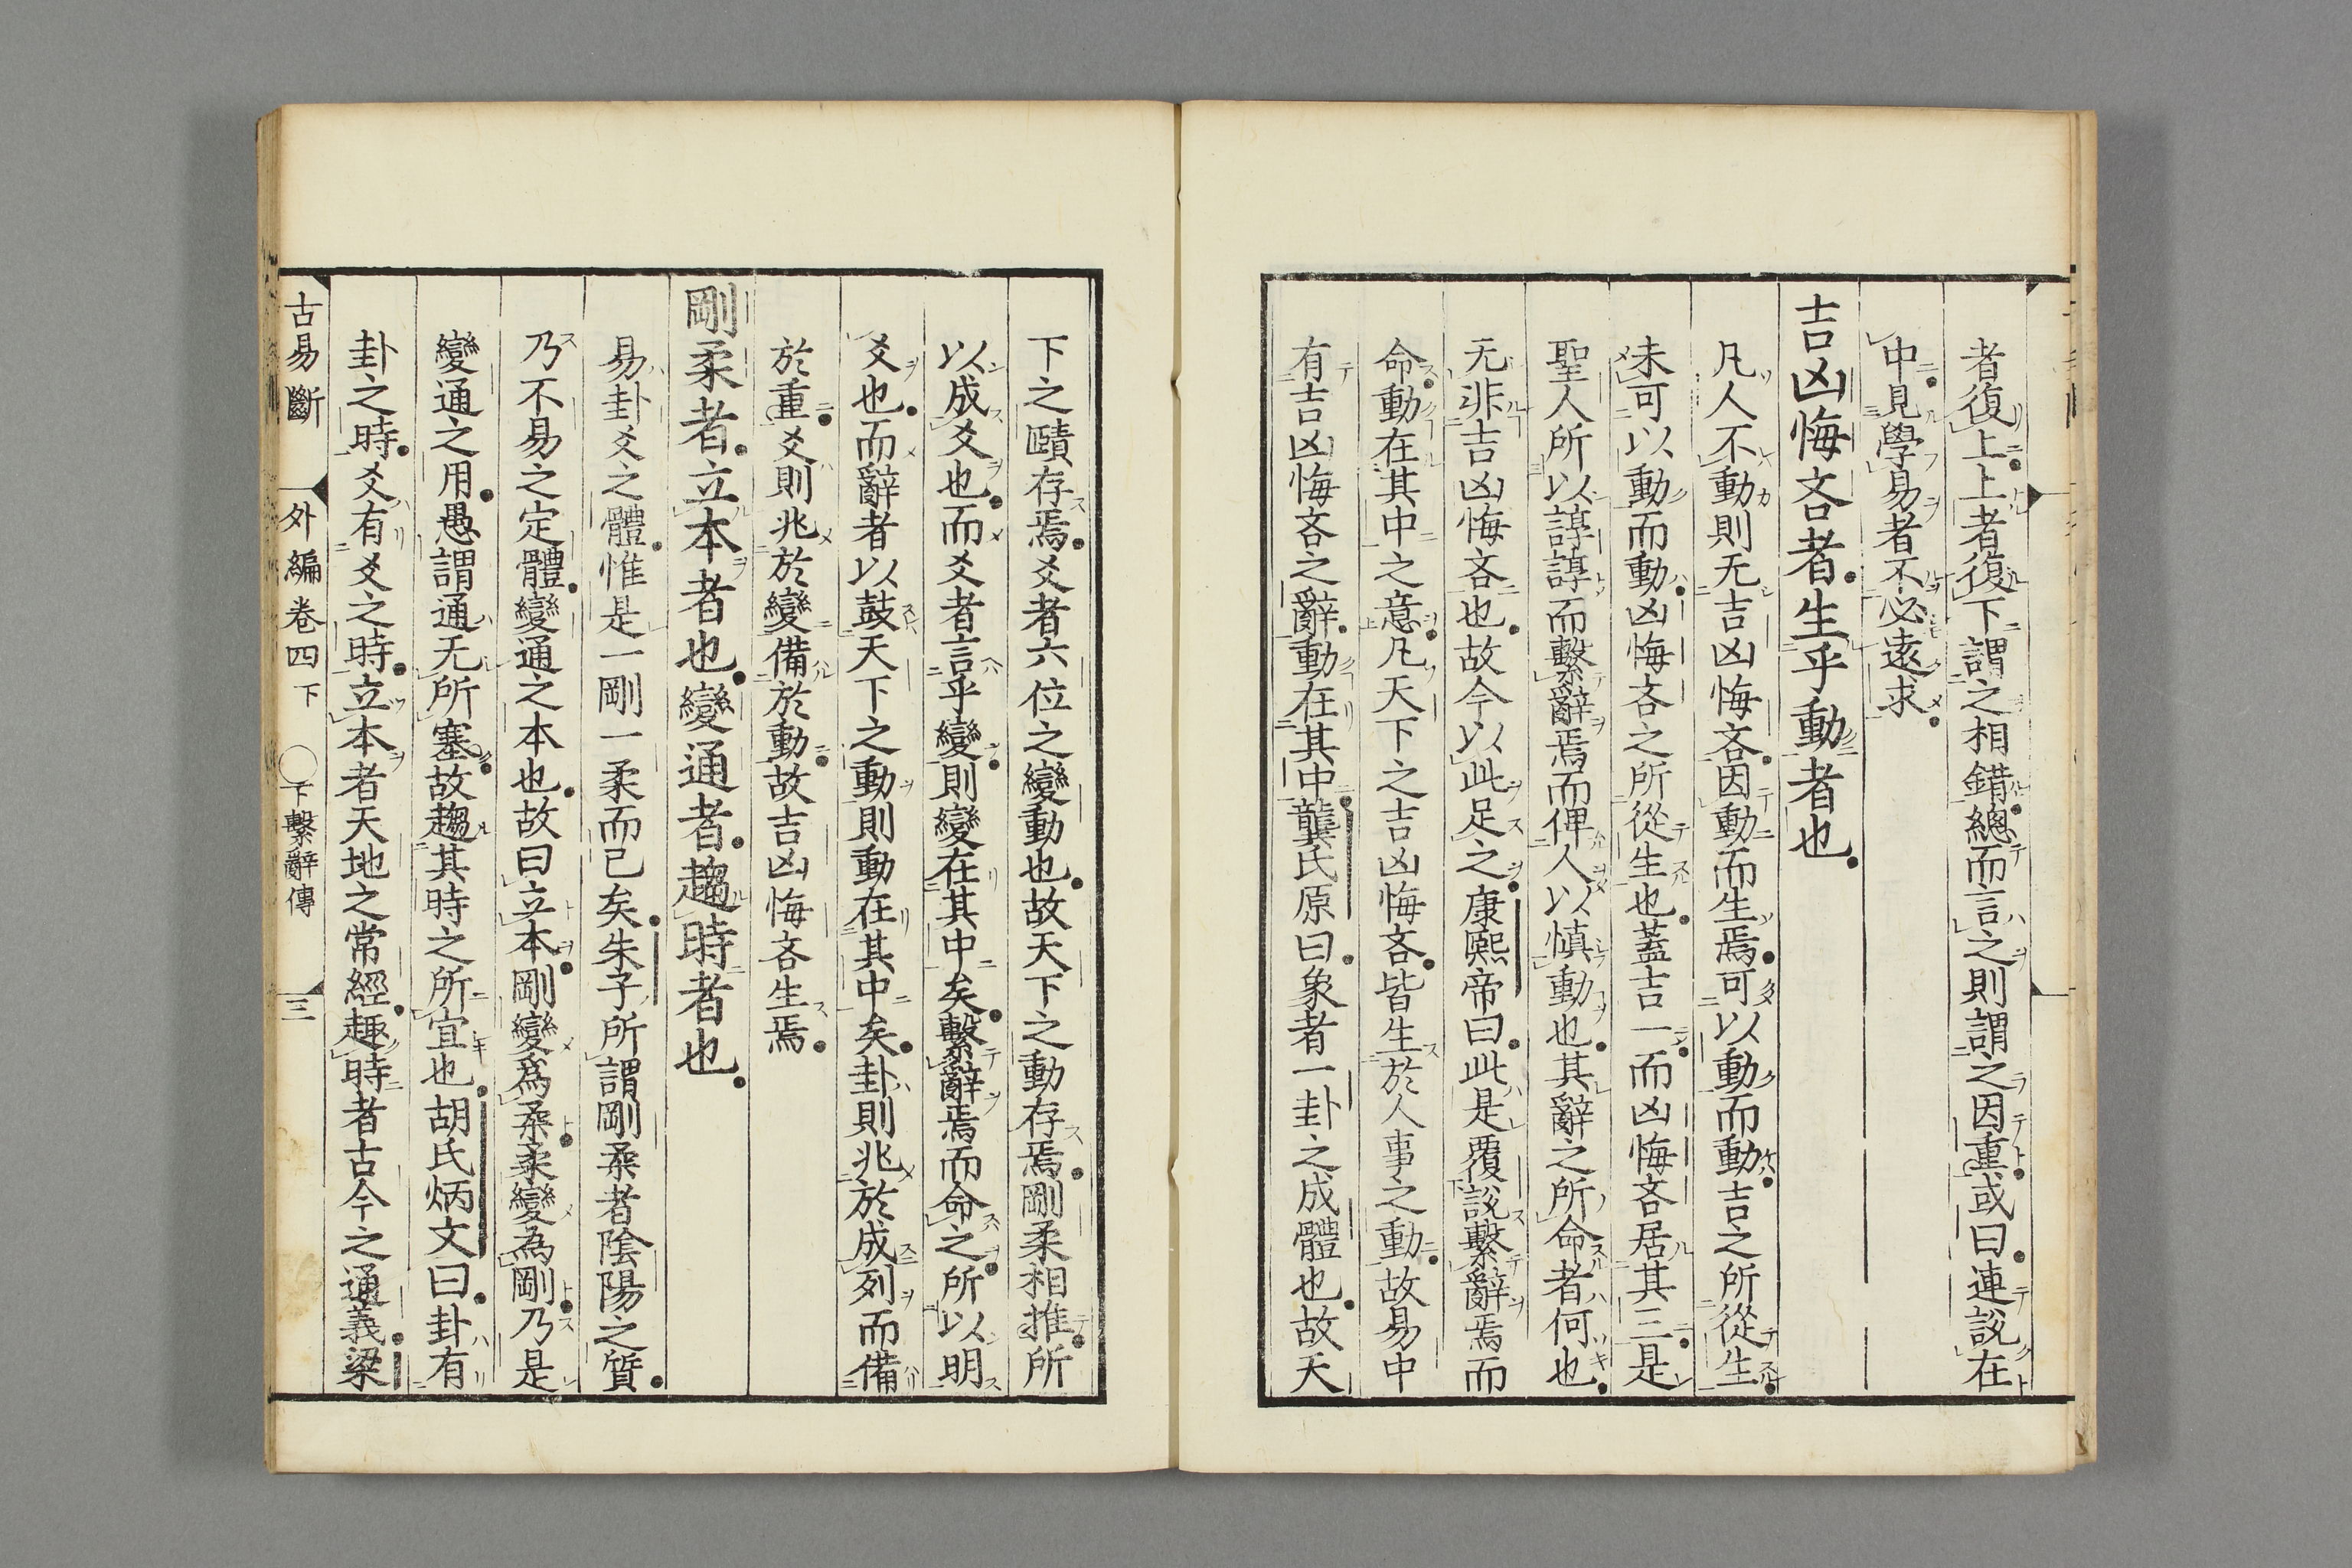 者復上上者復下謂之相錯總而言之則謂之因重或曰連說在
中見學易者不必遠求
吉凶悔吝者生乎動者也
凡人不動則无吉凶悔吝因動而生焉可以動而動吉之所從生
未可以動而動凶悔吝之所從生也蓋吉一而凶悔吝居其三是
聖人所以諄諄而繫辭焉而俾人以慎動也其辭之所命者何也
无非吉凶悔吝也故今以此足之康熙帝曰此是覆說繫辭焉而
命動在其中之意凡天下之吉凶悔吝皆生於人事之動故易中
有吉凶悔吝之辭動在其中龔氏原曰象者一卦之成體也故天
下之賾存焉爻者六位之變動也故天下之動存焉剛柔相推所
以成爻也而爻者言乎變則變在其中矣繫辭焉而命之所以明
爻也而辭者以鼓天下之動則動在其中矣卦則兆於成列而備
於重爻則兆於變備於動故吉凶悔吝生焉
剛柔者立本者也變通者趨時者也
易卦爻之體惟是一剛一柔而已矣朱子所謂剛柔者陰陽之質
乃不易之定體變通之本也故曰立本剛變爲柔柔變為剛乃是
變通之用愚謂通无所塞故趨其時之所宜也胡氏炳文曰卦有
卦之時爻有爻之時立本者天地之常經趣時者古今之通義梁
古易斷 外編卷四下 ○下繫辭傳 三